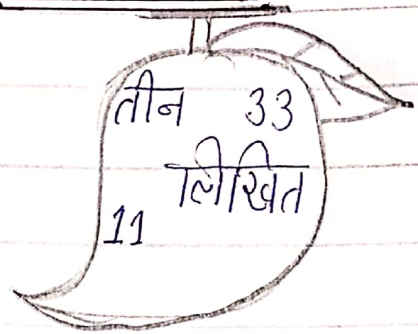 तीन 33
लिखित
11